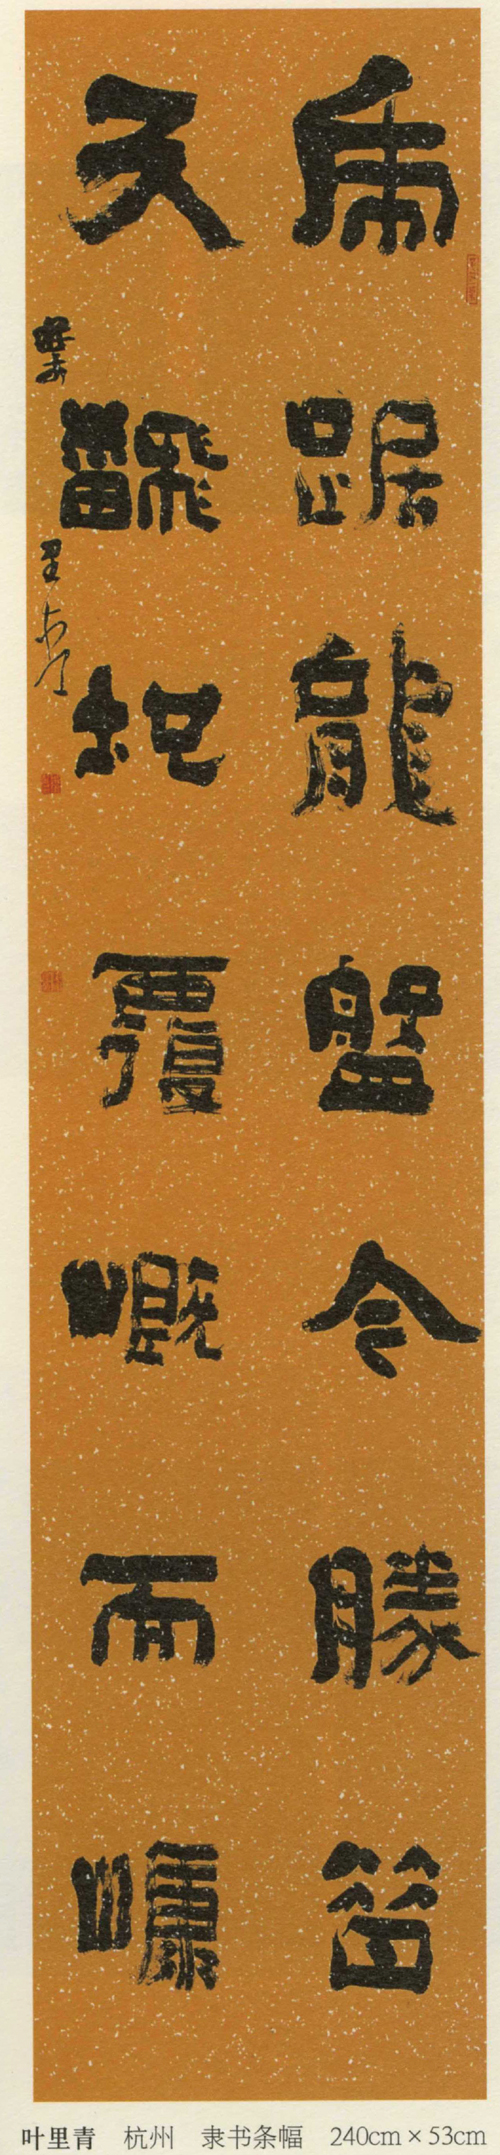 虎踞龍盤今勝昔
天飜地覆慨而慷
葉里青
叶里青 杭州 隶书条幅 240cm×53cm